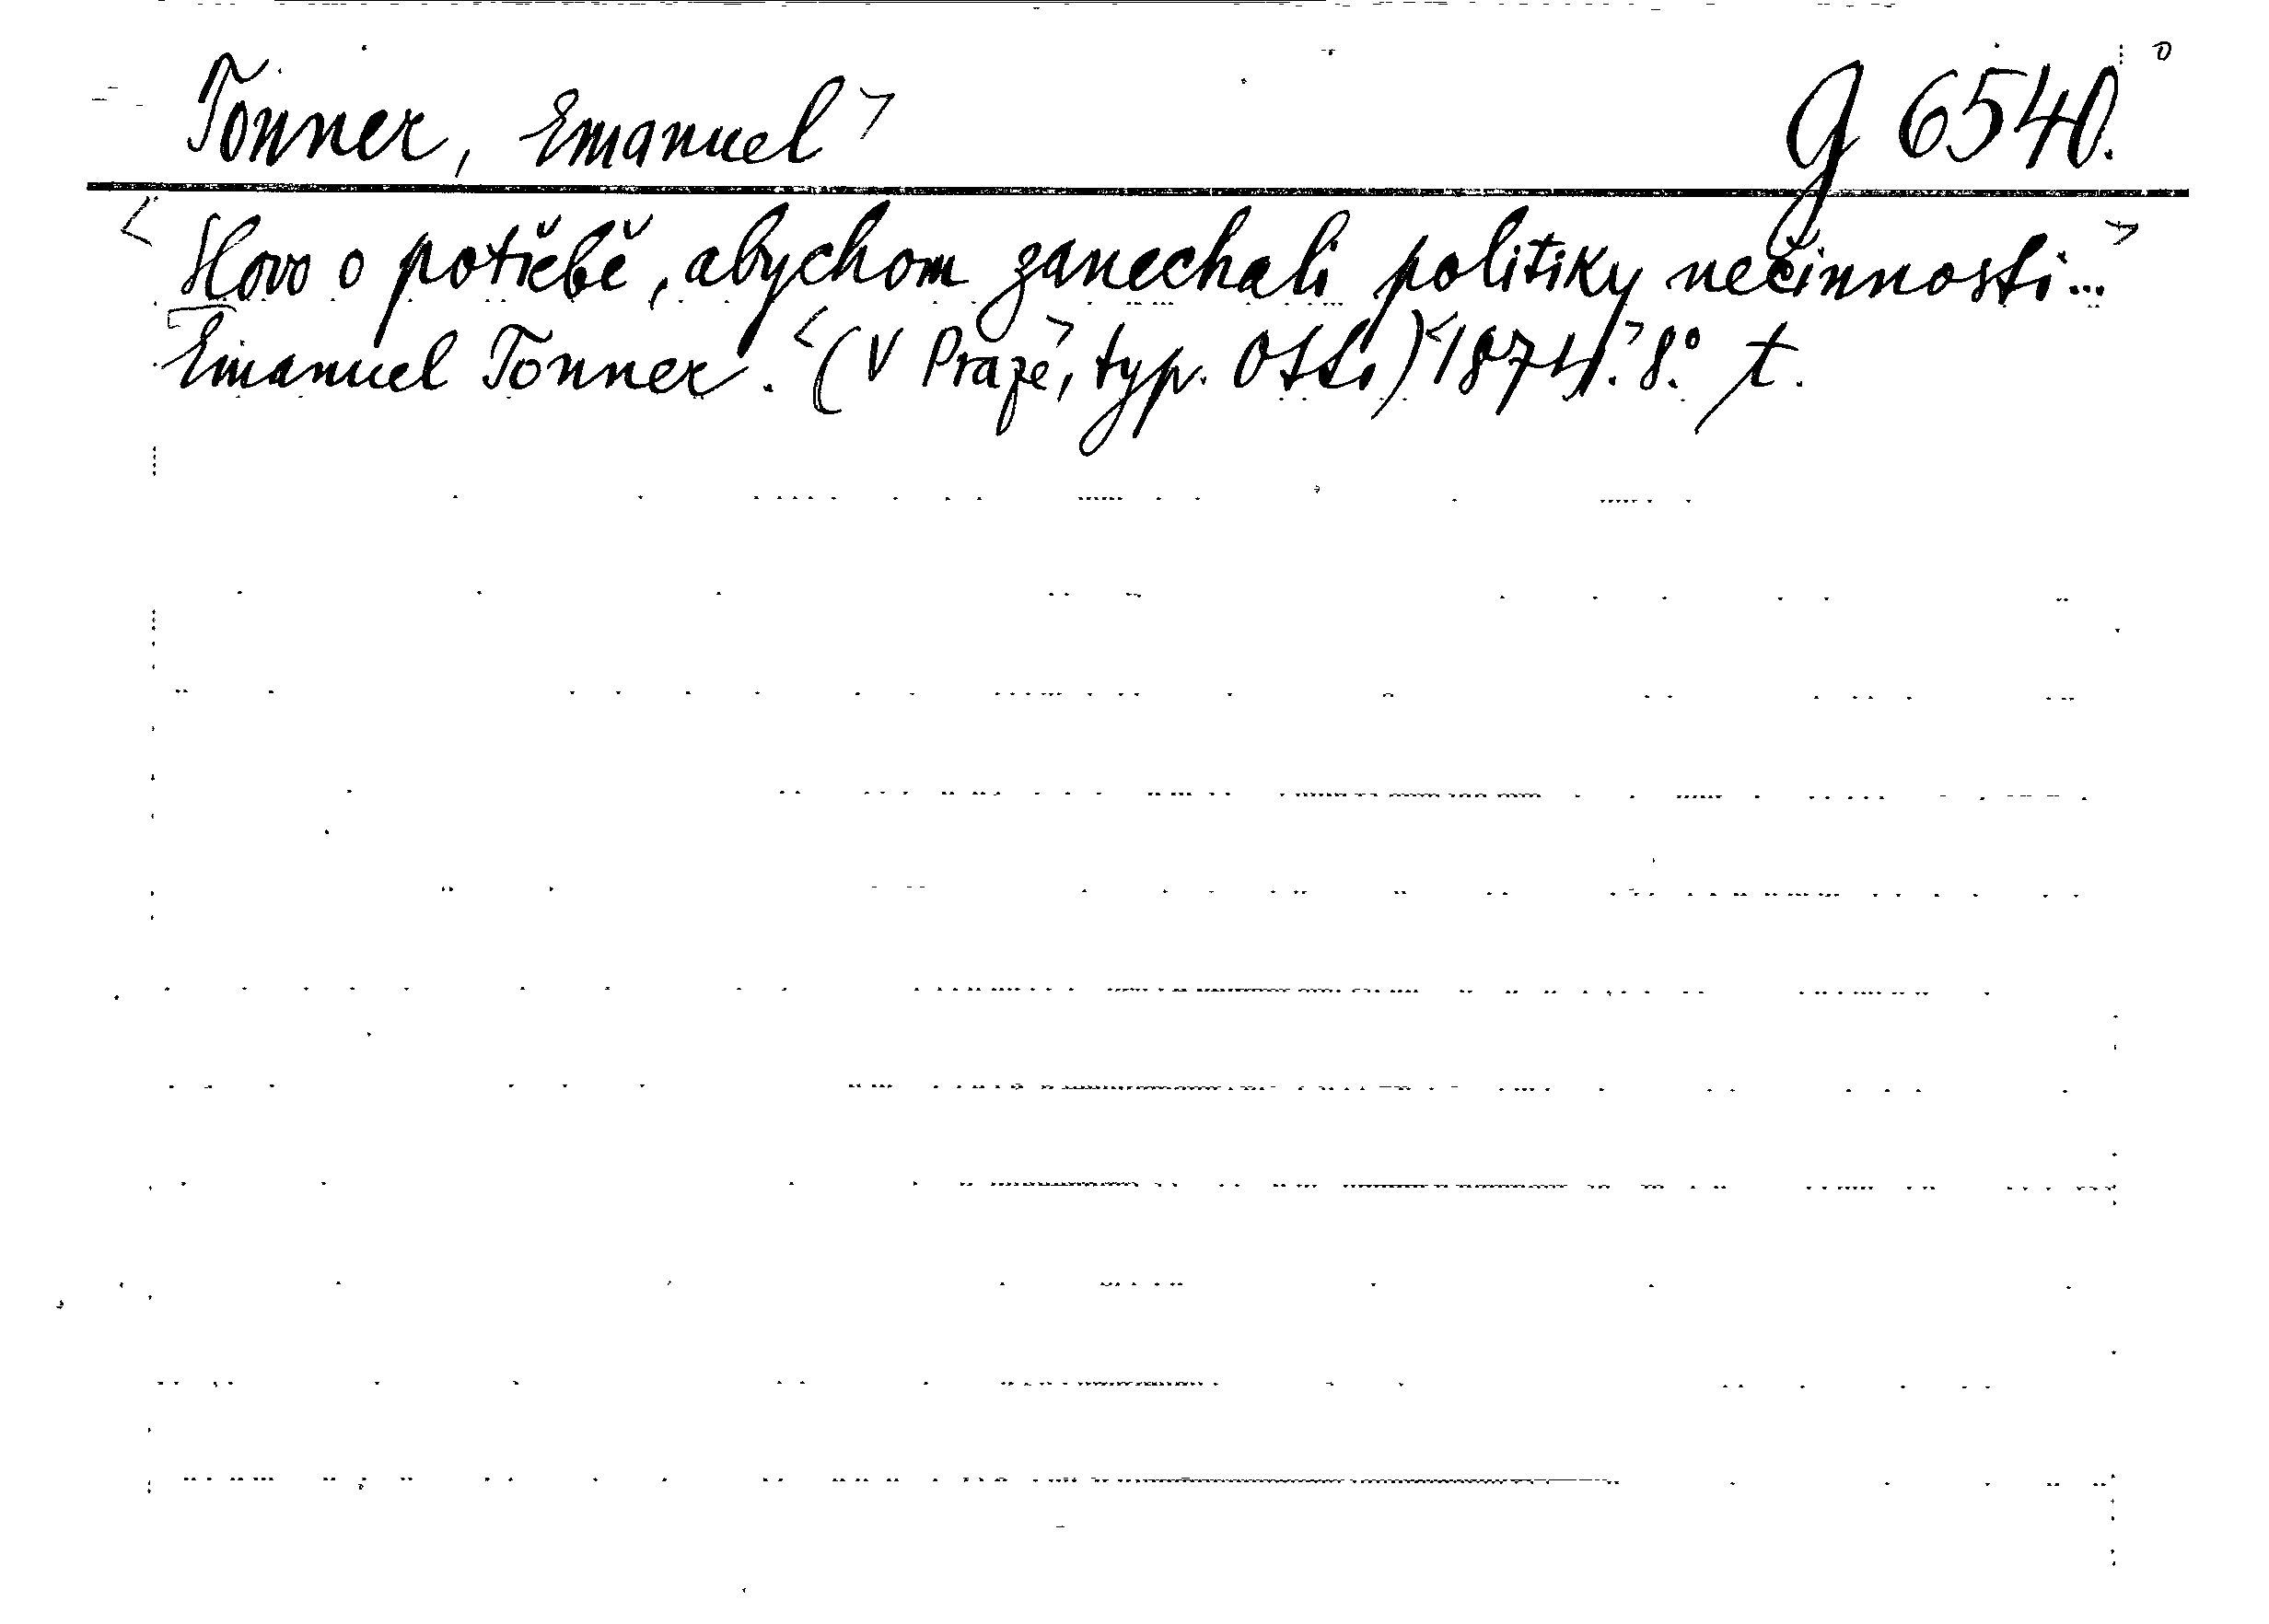 Tonner, Emanuel> g 6540.
<Slovo o potřebě, abychom zanechali politiky nečinnosti...>
Emanuel Tonner. <(V Praze>, typ. Otti.) <1874.> 8.° t.